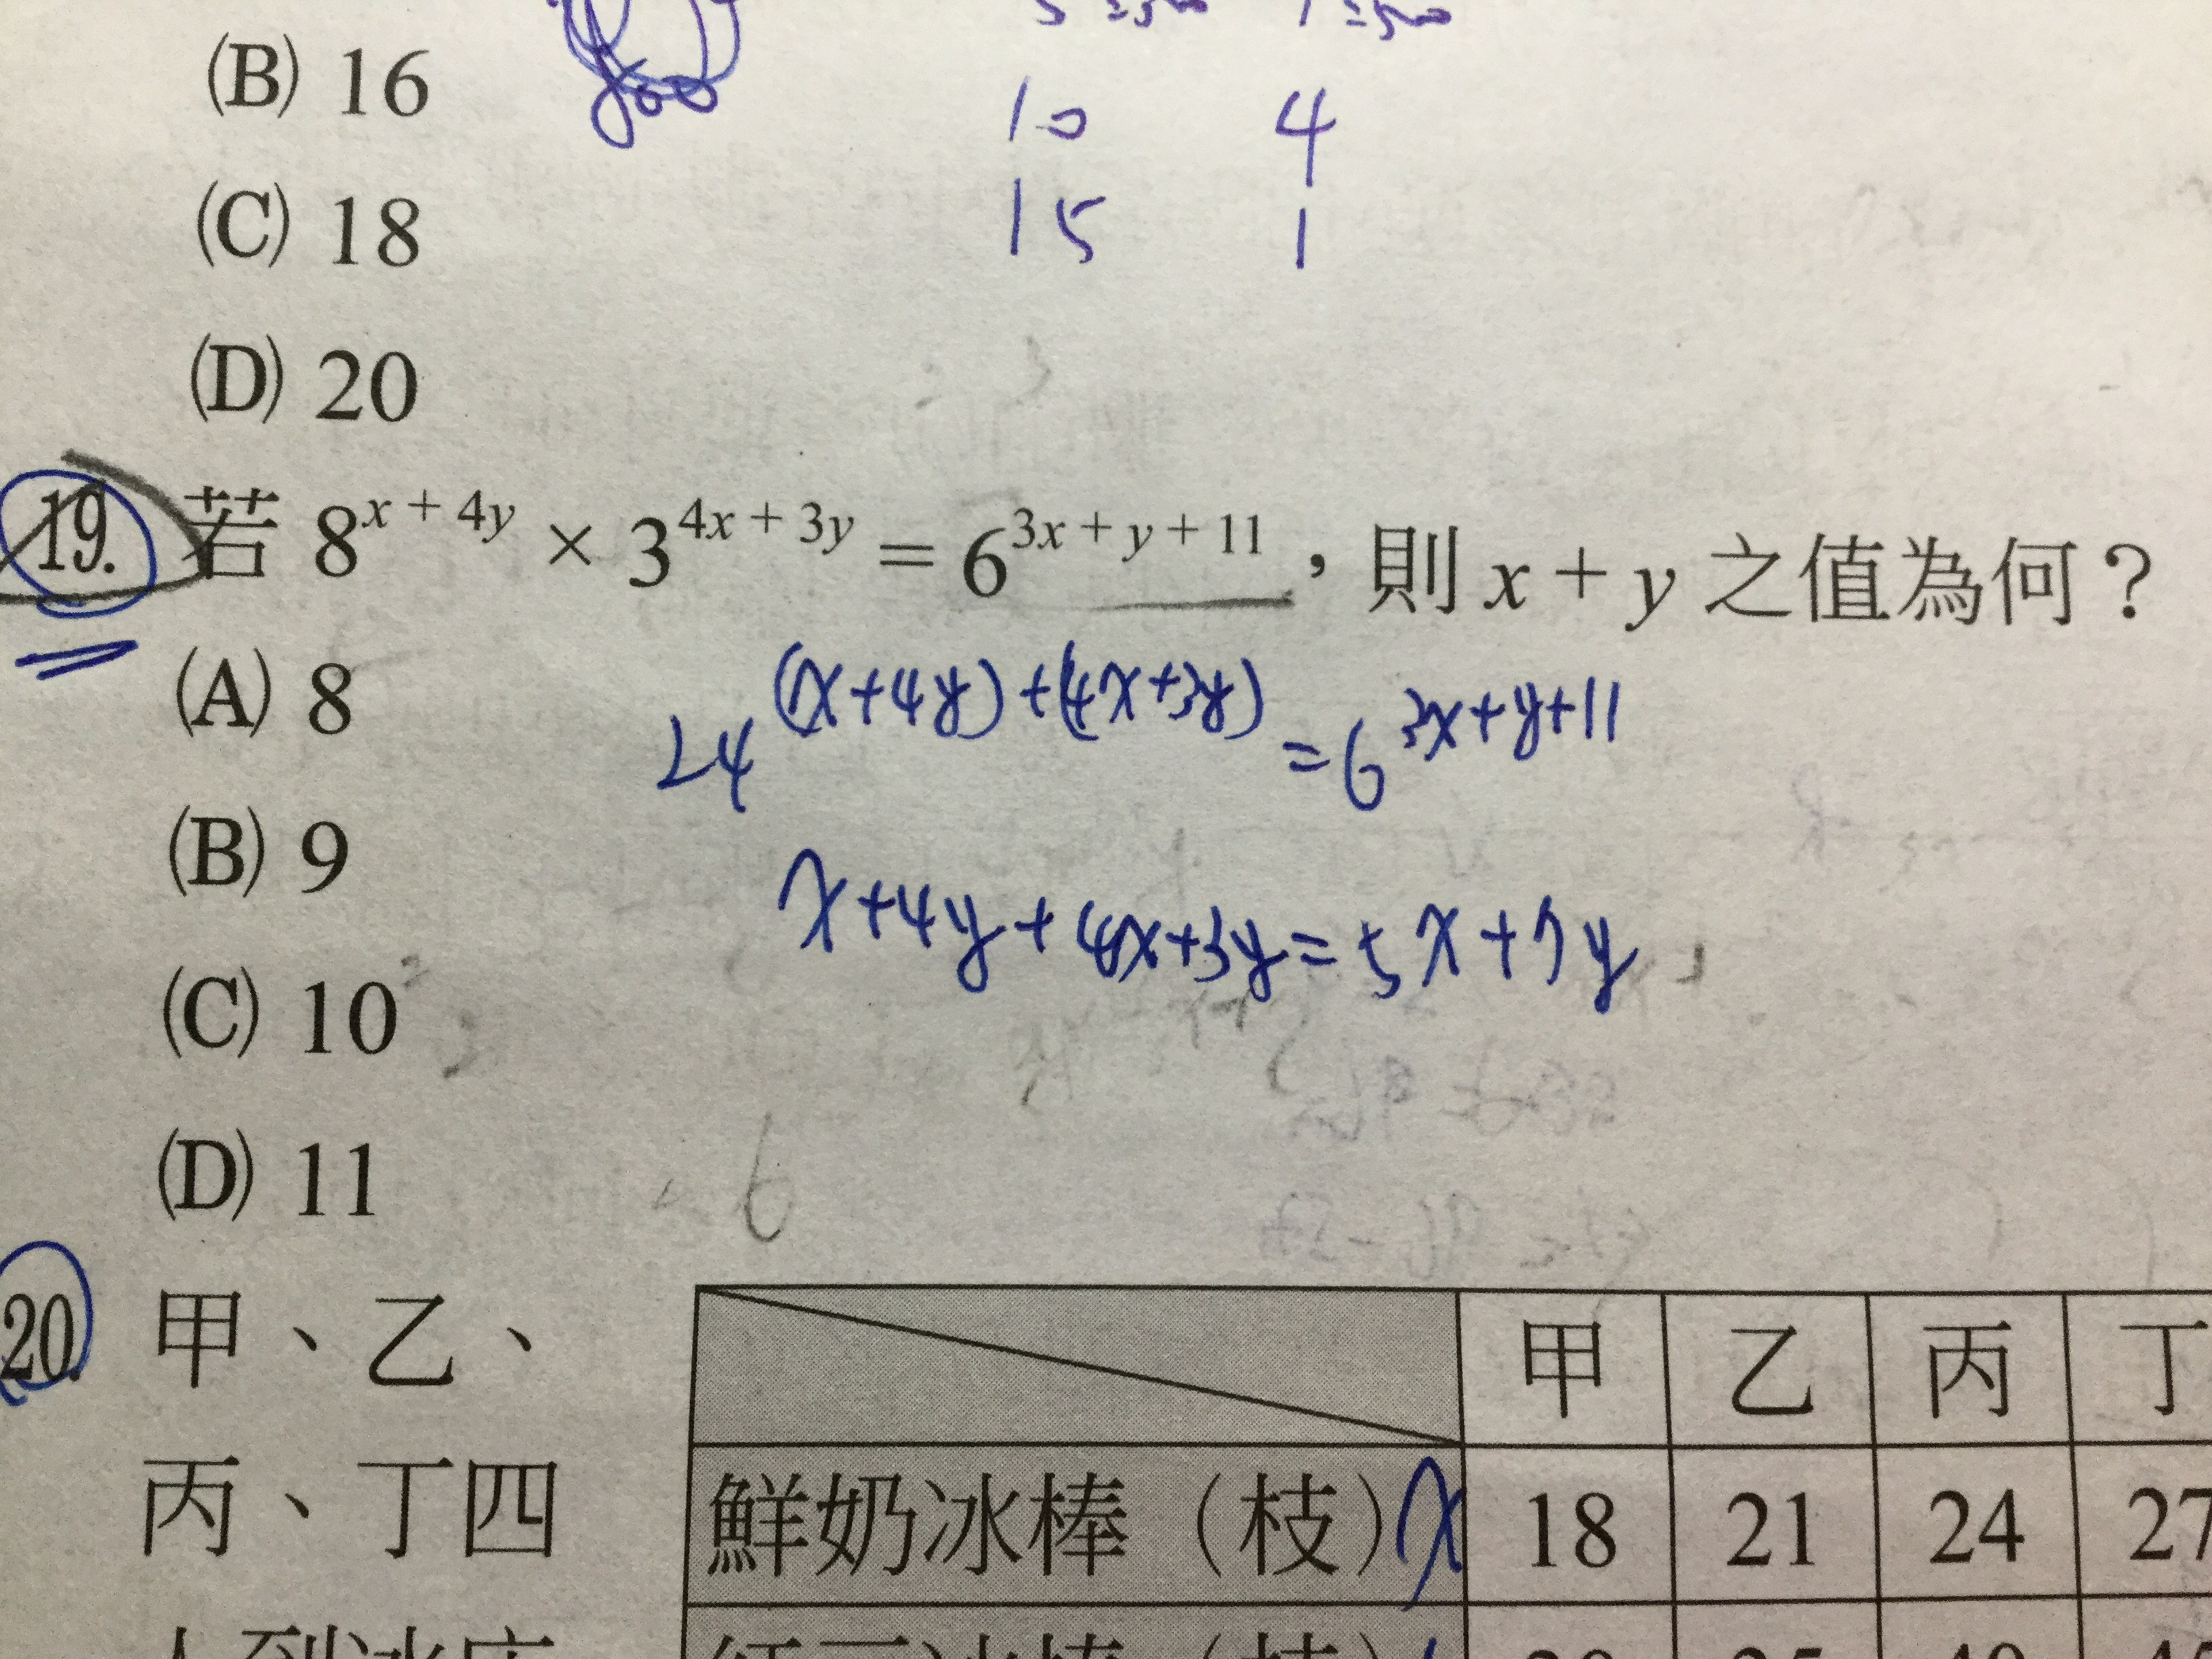 (B) 16
800
10 4
(C) 18
15 1
(D) 20
19. 若 8^{x + 4y} × 3^{4x + 3y} = 6^{3x + y + 11}，則 x + y 之值為何？
(A) 8
24^{(x+4y)+(4x+3y)} = 6^{3x+y+11}
(B) 9
x+4y+4x+3y=5x+7y
(C) 10
(D) 11
20. 甲、乙、
丙、丁四
甲 乙 丙 丁
鮮奶冰棒（枝） x 18 21 24 27